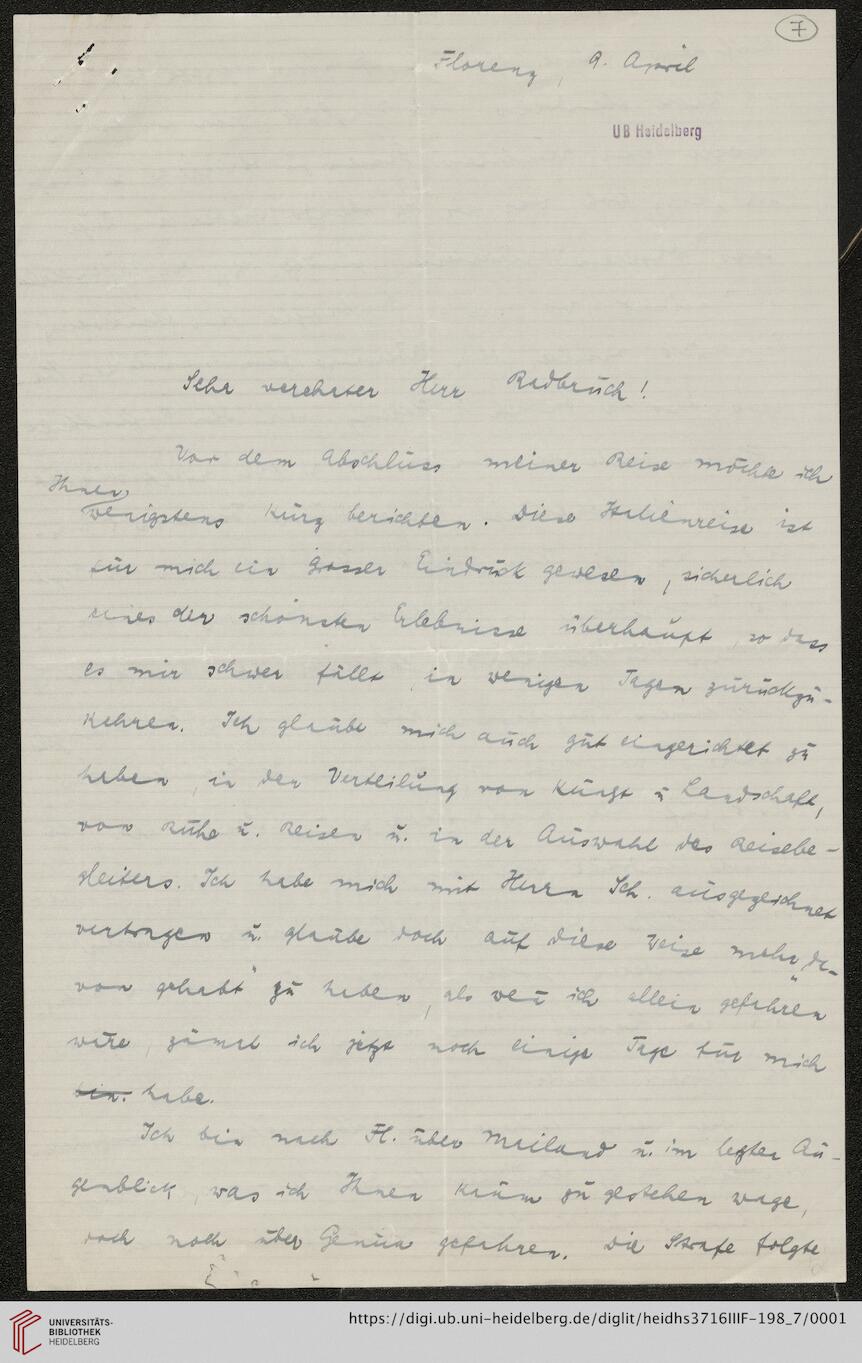 7
Florenz, 9. April
UB Heidelberg
Sehr verehrter Herr Radbruch!
Vor dem Abschluss meiner Reise möchte ich
Ihnen
wenigstens kurz berichten. Diese Italienreise ist
für mich ein grosser Eindruck gewesen, sicherlich
eines der schönsten Erlebnisse überhaupt, so dass
es mir schwer fällt, in wenigen Tagen zurückzu-
kehren. Ich glaube mich auch gut eingerichtet zu
haben, in der Verteilung von Kunst u Landschaft,
von Ruhe u. Reisen u. in der Auswahl des Reisebe-
gleiters. Ich habe mich mit Herrn Sch. ausgezeichnet
vertragen u. glaube doch auf diese Weise mehr „da-
von gehabt" zu haben, als wen̄ ich allein gefahren
wäre, zumal ich jetzt noch einige Tage für mich
bin. habe.
Ich bin nach Fl. über Mailand u. im letzten Au-
genblick, was ich Ihnen kaum zu gestehen wage,
doch noch über Genua gefahren. Die Strafe folgte
UNIVERSITÄTS-
BIBLIOTHEK
HEIDELBERG
https://digi.ub.uni-heidelberg.de/diglit/heidhs3716IIIF-198_7/0001